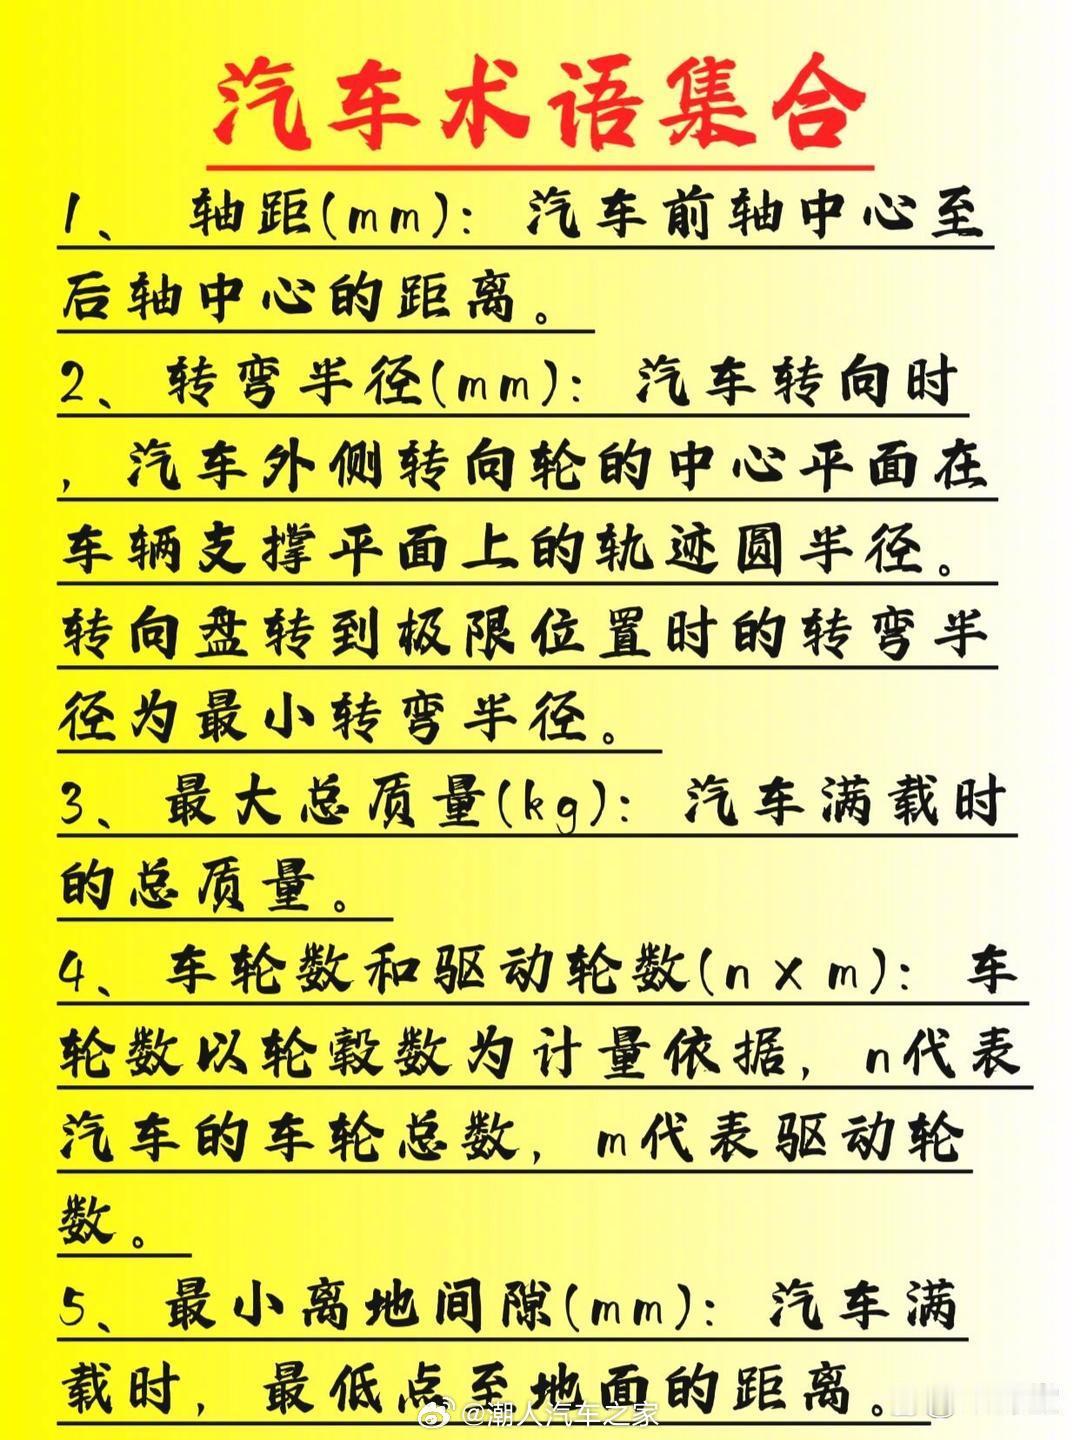 汽车术语集合
1、 轴距(mm): 汽车前轴中心至
后轴中心的距离。
2、 转弯半径(mm): 汽车转向时
, 汽车外侧转向轮的中心平面在
车辆支撑平面上的轨迹圆半径。
转向盘转到极限位置时的转弯半
径为最小转弯半径。
3、 最大总质量(kg): 汽车满载时
的总质量。
4、 车轮数和驱动轮数(n×m): 车
轮数以轮毂数为计量依据, n代表
汽车的车轮总数, m代表驱动轮
数。
5、 最小离地间隙(mm): 汽车满
载时, 最低点至地面的距离。
@潮人汽车之家